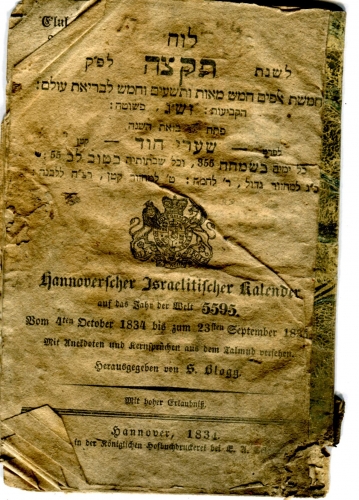 Elul
לוח
לשנת תקצה לפ״ק
חמשת אלפים חמש מאות ותשעים וחמש לבריאת עולם:
הקביעות: פשוטה:
שערי הוד
כל ימיה בשמחה 355, וכל שבתותיה בטוב לב 55:
Hannoverscher Israelitischer Kalender
auf das Jahr der Welt 5595.
Vom 4ten October 1834 bis zum 23sten September
Mit Anekdoten und Kernsprüchen aus dem Talmud versehen.
Herausgegeben von S. Blogg.
Mit hoher Erlaubniß.
Hannover, 1834.
in der Königlichen Hofbuchdruckerei bei E. A.